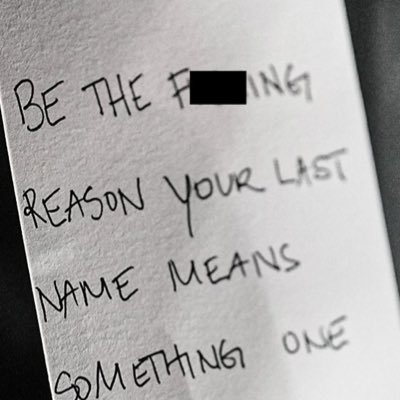 BE THE F ING
REASON YOUR LAST
NAME MEANS
SOMETHING ONE